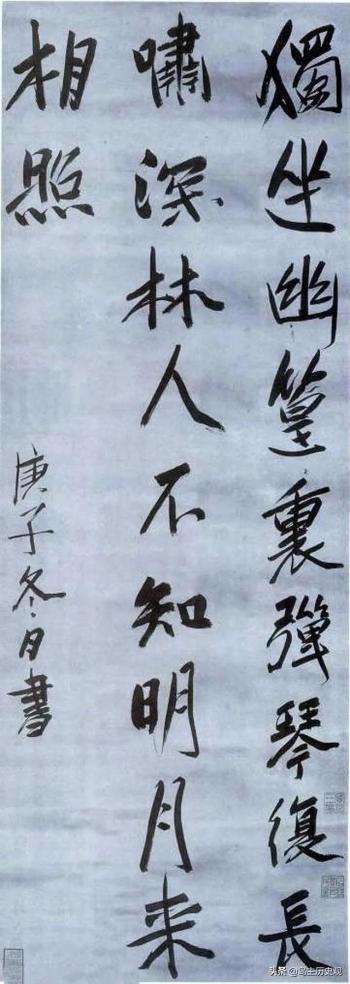 獨坐幽篁裏彈琴復長
嘯深林人不知明月来
相照
庚子冬月書
头条@鸣主历史观